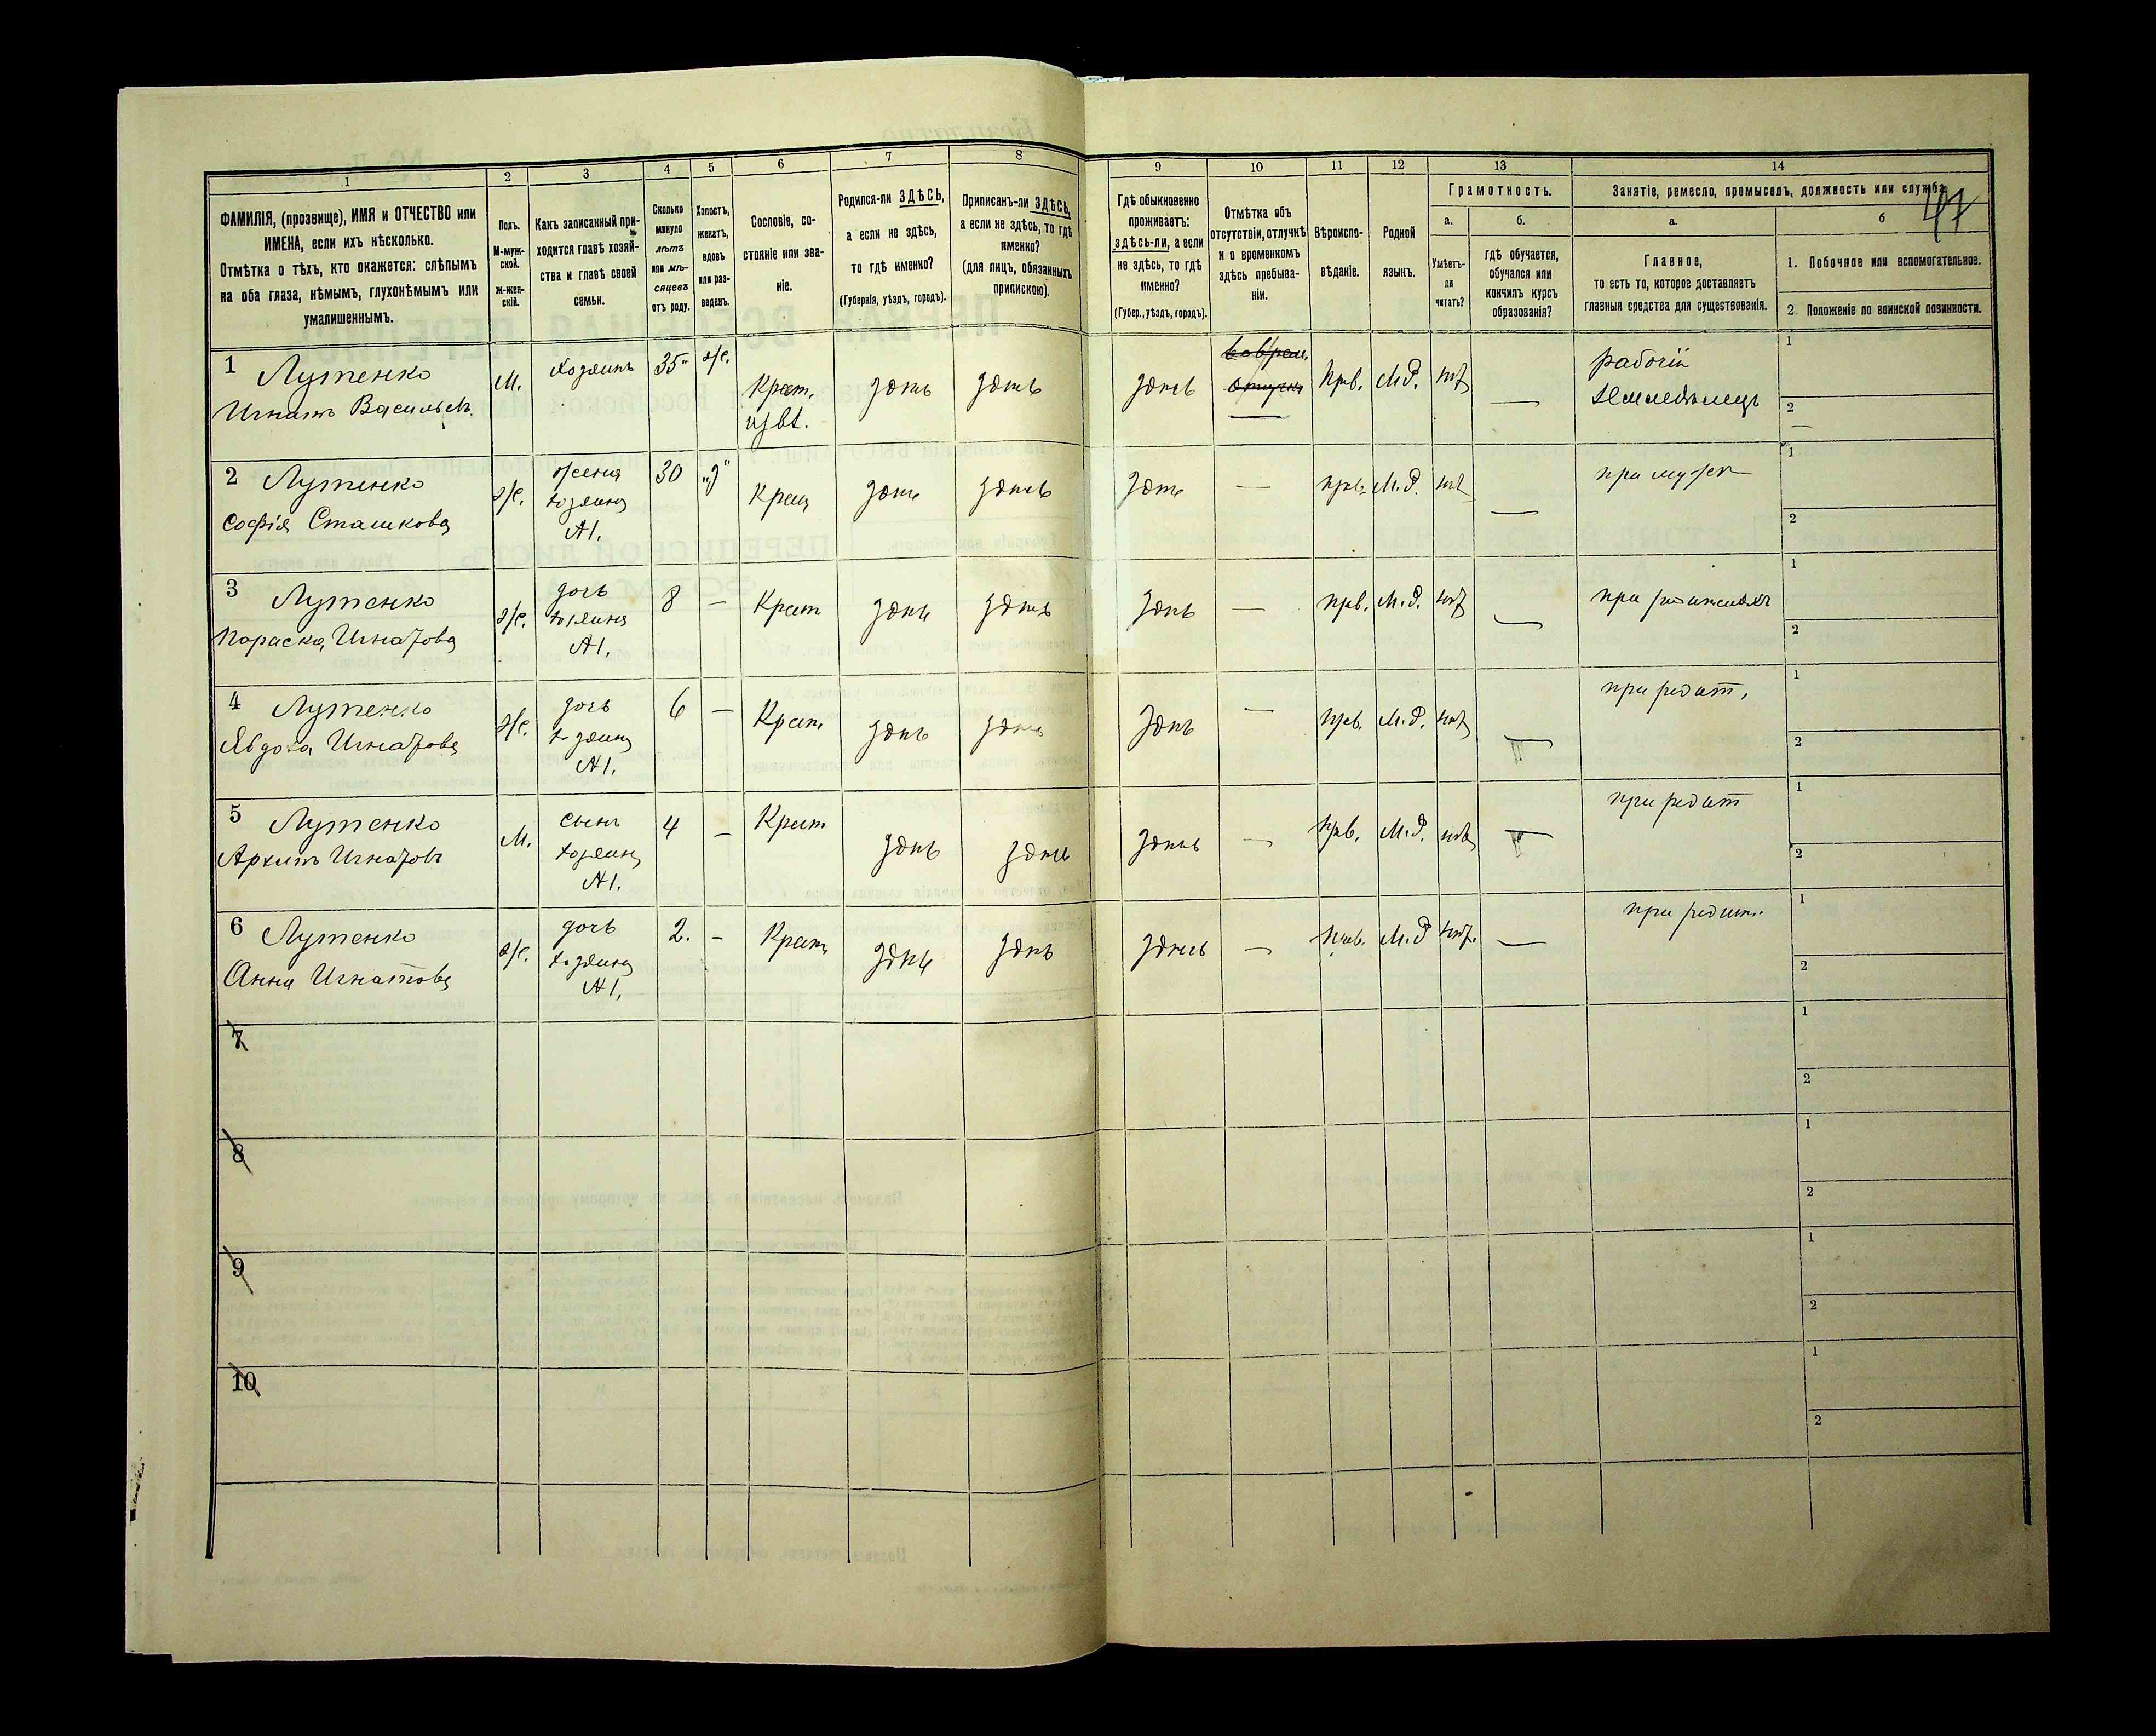 1 2 3 4 5 6 7 8 9 10 11 12 13 14
ФАМИЛІЯ, (прозвище), ИМЯ и ОТЧЕСТВО или
ИМЕНА, если ихъ нѣсколько.
Отмѣтка о тѣхъ, кто окажется: слѣпымъ
на оба глаза, нѣмымъ, глухонѣмымъ или
умалишеннымъ.
Полъ.
М-муж-
ской.
ж-жен-
скій.
Какъ записанный при-
ходится главѣ хозяй-
ства и главѣ своей
семьи.
Сколько
минуло
лѣтъ
или мѣ-
сяцевъ
отъ роду.
Холостъ,
женатъ,
вдовъ
или раз-
веденъ.
Сословіе, со-
стояніе или зва-
ніе.
Родился-ли ЗДѢСЬ,
а если не здѣсь,
то гдѣ именно?
(Губернія, уѣздъ, городъ).
Приписанъ-ли ЗДѢСЬ,
а если не здѣсь, то гдѣ
именно?
(для лицъ, обязанныхъ
припискою).
Гдѣ обыкновенно
проживаетъ:
здѣсь-ли, а если
не здѣсь, то гдѣ
именно?
(Губер., уѣздъ, городъ).
Отмѣтка объ
отсутствіи, отлучкѣ
и о временномъ
здѣсь пребыва-
ніи.
Вѣроиспо-
вѣданіе.
Родной
языкъ.
Грамотность.
а.
Умѣетъ-
ли
читать?
б.
гдѣ обучается,
обучался или
кончилъ курсъ
образованія?
Занятіе, ремесло, промыселъ, должность или служба.
47
а.
Главное,
то есть то, которое доставляетъ
главныя средства для существованія.
б
1. Побочное или вспомогательное.
2. Положеніе по воинской повинности.
1 Лутенко
Игнатъ Васильев.
М.
Хозяинъ
35
ж.
Крест.
здѣсь
здѣсь
здѣсь
Прв.
М.Р.
нѣт
—
рабочій
земледѣлецъ
1
2
—
2 Лутенко
Софія Сташкова
ж.
жена
хозяина
№1.
30
"З"
Крест
здѣсь
здѣсь
здѣсь
—
прв.
М.Р.
нѣт
—
при мужѣ
1
2
3 Лутенко
Параска Игнатова
ж.
дочь
хозяина
№1.
8
—
Крест
здѣсь
здѣсь
здѣсь
—
прв.
М.Р.
нѣт
—
при родителяхъ
1
2
4 Лутенко
Явдоха Игнатова
ж.
дочь
хозяина
№1.
6
—
Крест
здѣсь
здѣсь
здѣсь
—
прв.
М.Р.
нѣт
—
при родит.
1
2
5 Лутенко
Архипъ Игнатовъ
М.
сынъ
хозяина
№1.
4
—
Крест
здѣсь
здѣсь
здѣсь
—
прв.
М.Р.
нѣт
—
при родит
1
2
6 Лутенко
Анна Игнатова
ж.
дочь
хозяина
№1.
2.
—
Крест
здѣсь
здѣсь
здѣсь
—
прв.
М.Р
нѣт.
—
при родит.
1
2
7
1
2
8
1
2
9
1
2
10
1
2